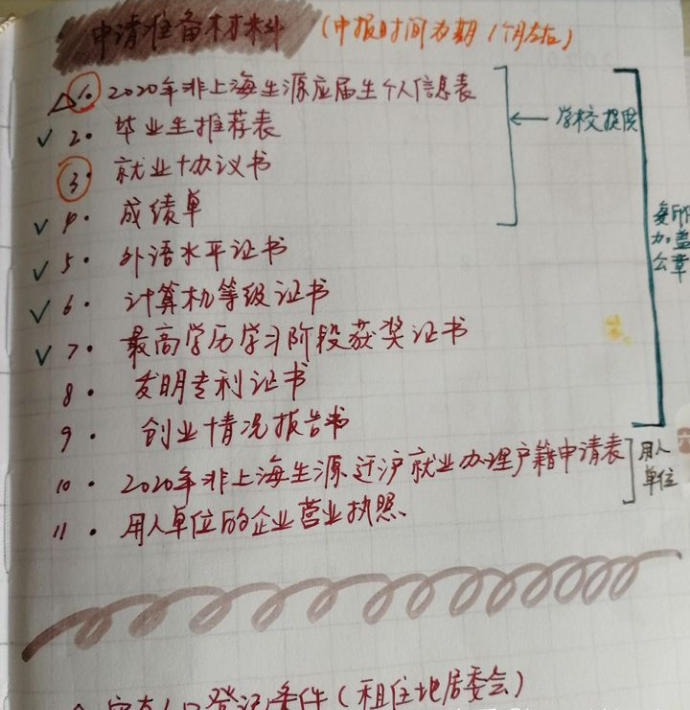 申请准备材料 (申报时间为期1个月左右)
△ 1. 2020年非上海生源应届生个人信息表
✓ 2. 毕业生推荐表
← 学校提供
3. 就业协议书
✓ 4. 成绩单
复印
加盖
公章
✓ 5. 外语水平证书
✓ 6. 计算机等级证书
✓ 7. 最高学历学习阶段获奖证书
8. 发明专利证书
9. 创业情况报告书
10. 2020年非上海生源迁沪就业办理户籍申请表
用人
单位
11. 用人单位的企业营业执照.
登记条件(租住地居委会)